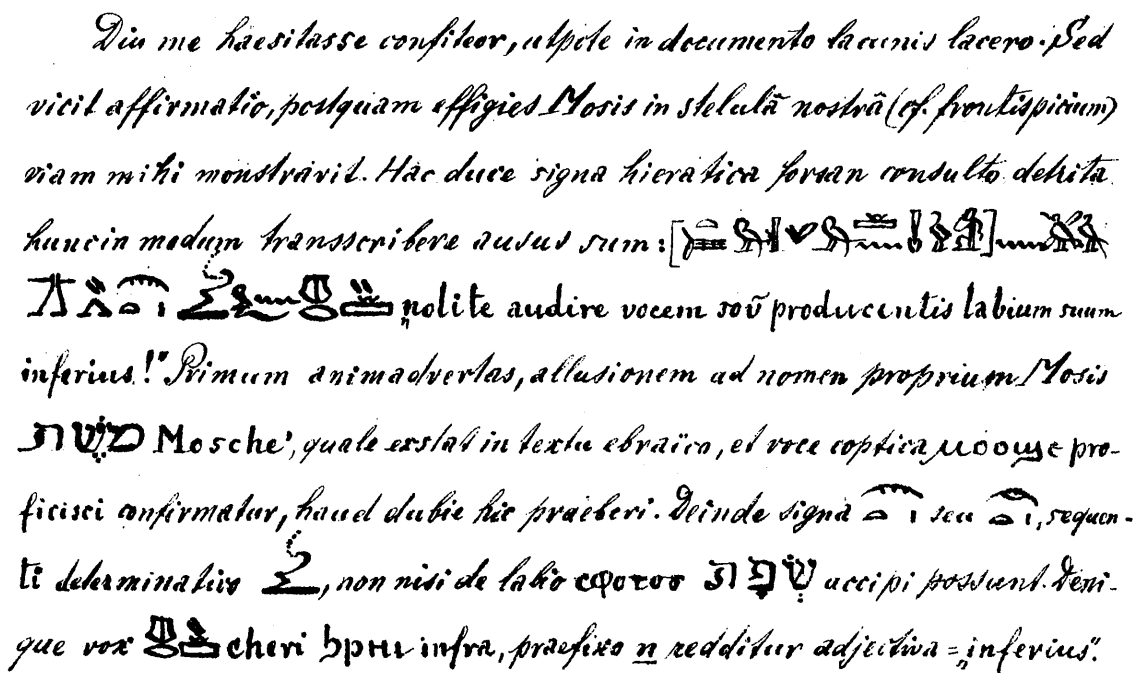 Diu me haesitasse confiteor, utpote in documento lacunis lacero. Sed
vicit affirmatio, postquam effigies Mosis in stelulâ nostrâ (cf. frontispicium)
viam mihi monstravit. Hac duce signa hieratica forsan consulto detrita
huncin modum transscribere ausus sum: [ ]
„nolite audire vocem τοῦ producentis labium suum
inferius!" Primum animadvertas, allusionem ad nomen proprium Mosis
Mosche', quale exstat in textu ebraïco, et voce coptica ⲙⲟⲟϣⲉ pro-
ficisci confirmatur, haud dubie hic praeberi. Deinde signa seu , sequen-
ti determinativo , non nisi de labio שׂפת accipi possunt. Deni-
que vox cheri ϧⲣⲏⲓ infra, praefixo n redditur adjectiva = „inferius".